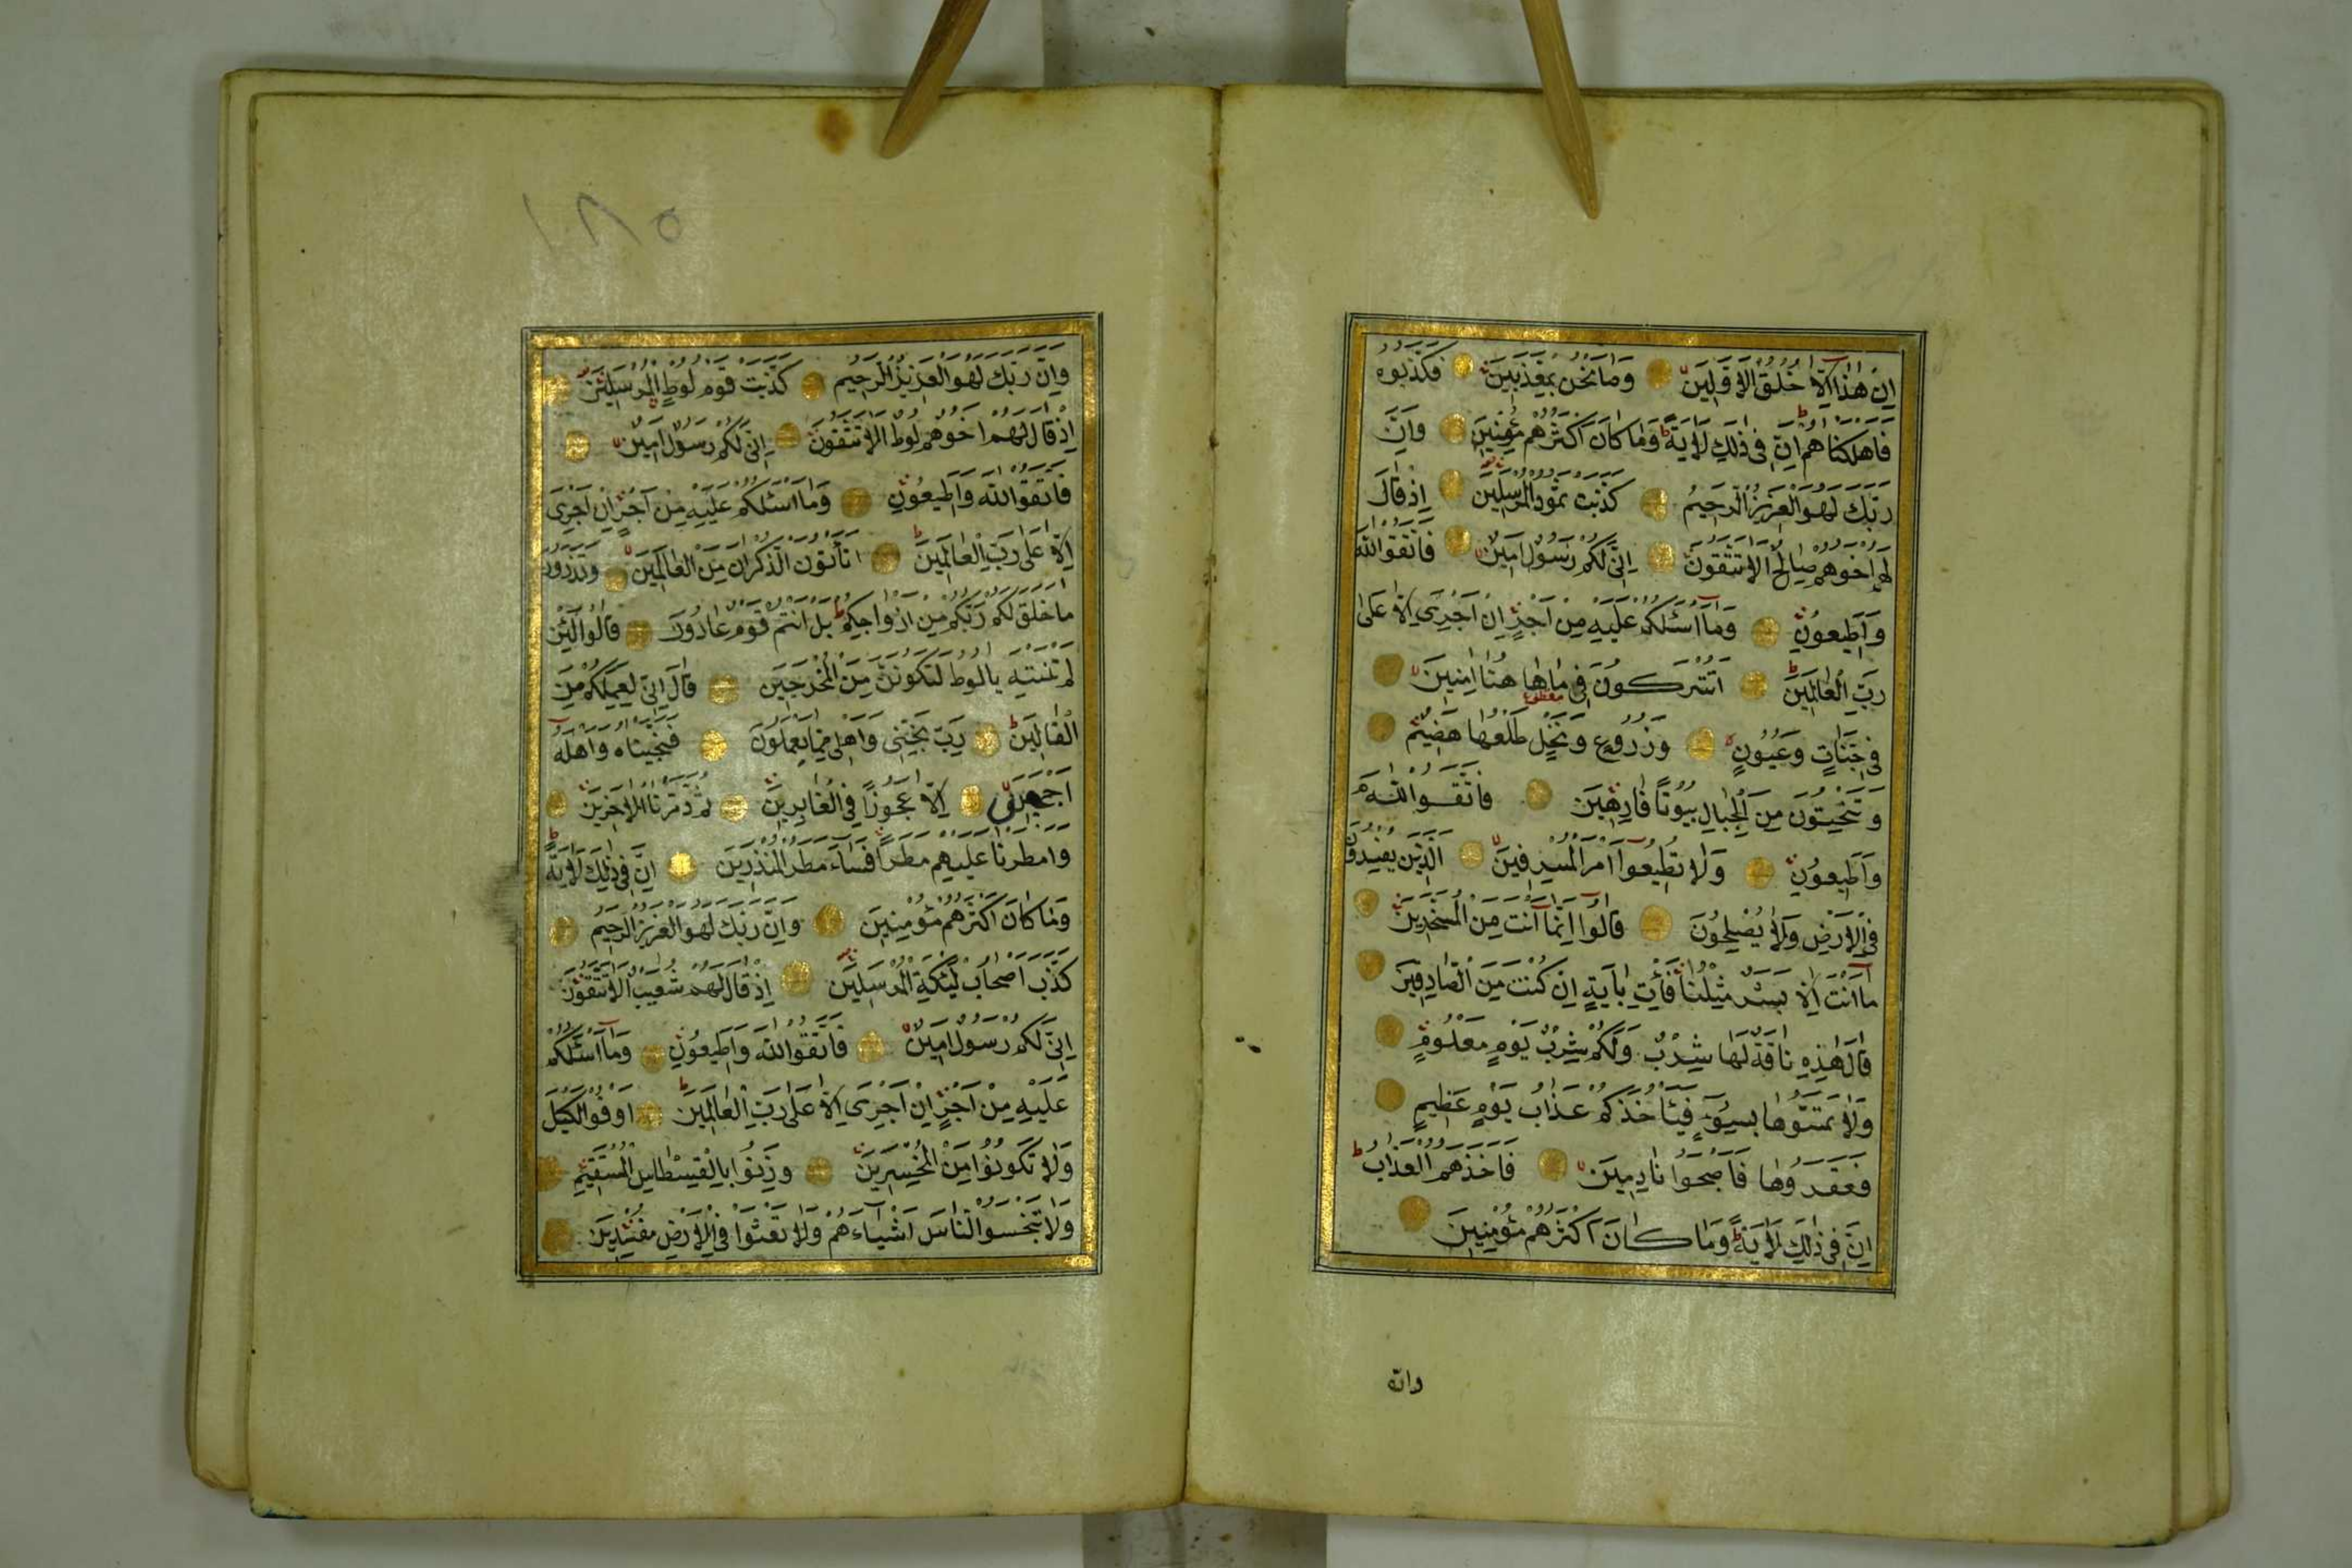 اِنْ هٰذَا اِلَّا خُلُقُ الْاَوَّلِينَ وَمَا نَحْنُ بِمُعَذَّبِينَ فَكَذَّبُوهُ
فَاَهْلَكْنَاهُمْ اِنَّ فِى ذٰلِكَ لَاٰيَةً وَمَا كَانَ اَكْثَرُهُمْ مُؤْمِنِينَ وَاِنَّ
رَبَّكَ لَهُوَ الْعَزِيزُ الرَّحِيمُ كَذَّبَتْ ثَمُودُ الْمُرْسَلِينَ اِذْ قَالَ
لَهُمْ اَخُوهُمْ صَالِحٌ اَلَا تَتَّقُونَ اِنِّى لَكُمْ رَسُولٌ اَمِينٌ فَاتَّقُوا اللّٰهَ
وَاَطِيعُونِ وَمَآ اَسْئَلُكُمْ عَلَيْهِ مِنْ اَجْرٍ اِنْ اَجْرِىَ اِلَّا عَلٰى
رَبِّ الْعَالَمِينَ اَتُتْرَكُونَ فِى مَا هَا هُنَا اٰمِنِينَ
فِى جَنَّاتٍ وَعُيُونٍ وَزُرُوعٍ وَنَخْلٍ طَلْعُهَا هَضِيمٌ
وَتَنْحِتُونَ مِنَ الْجِبَالِ بُيُوتًا فَارِهِينَ فَاتَّقُوا اللّٰهَ
وَاَطِيعُونِ وَلَا تُطِيعُوآ اَمْرَ الْمُسْرِفِينَ اَلَّذِينَ يُفْسِدُونَ
فِى الْاَرْضِ وَلَا يُصْلِحُونَ قَالُوآ اِنَّمَآ اَنْتَ مِنَ الْمُسَحَّرِينَ
مَآ اَنْتَ اِلَّا بَشَرٌ مِثْلُنَا فَأْتِ بِاٰيَةٍ اِنْ كُنْتَ مِنَ الصَّادِقِينَ
قَالَ هٰذِهِ نَاقَةٌ لَهَا شِرْبٌ وَلَكُمْ شِرْبُ يَوْمٍ مَعْلُومٍ
وَلَا تَمَسُّوهَا بِسُوٓءٍ فَيَأْخُذَكُمْ عَذَابُ يَوْمٍ عَظِيمٍ
فَعَقَرُوهَا فَاَصْبَحُوا نَادِمِينَ فَاَخَذَهُمُ الْعَذَابُ
اِنَّ فِى ذٰلِكَ لَاٰيَةً وَمَا كَانَ اَكْثَرُهُمْ مُؤْمِنِينَ
وانّ
١٨٥
وَاِنَّ رَبَّكَ لَهُوَ الْعَزِيزُ الرَّحِيمُ كَذَّبَتْ قَوْمُ لُوطٍ الْمُرْسَلِينَ
اِذْ قَالَ لَهُمْ اَخُوهُمْ لُوطٌ اَلَا تَتَّقُونَ اِنِّى لَكُمْ رَسُولٌ اَمِينٌ
فَاتَّقُوا اللّٰهَ وَاَطِيعُونِ وَمَا اَسْئَلُكُمْ عَلَيْهِ مِنْ اَجْرٍ اِنْ اَجْرِىَ
اِلَّا عَلٰى رَبِّ الْعَالَمِينَ اَتَأْتُونَ الذُّكْرَانَ مِنَ الْعَالَمِينَ وَتَذَرُونَ
مَا خَلَقَ لَكُمْ رَبُّكُمْ مِنْ اَزْوَاجِكُمْ بَلْ اَنْتُمْ قَوْمٌ عَادُونَ قَالُوا لَئِنْ
لَمْ تَنْتَهِ يَا لُوطُ لَتَكُونَنَّ مِنَ الْمُخْرَجِينَ قَالَ اِنِّى لِعَمَلِكُمْ مِنَ
الْقَالِينَ رَبِّ نَجِّنِى وَاَهْلِى مِمَّا يَعْمَلُونَ فَنَجَّيْنَاهُ وَاَهْلَهُ
اَجْمَعِينَ اِلَّا عَجُوزًا فِى الْغَابِرِينَ ثُمَّ دَمَّرْنَا الْاٰخَرِينَ
وَاَمْطَرْنَا عَلَيْهِمْ مَطَرًا فَسَآءَ مَطَرُ الْمُنْذَرِينَ اِنَّ فِى ذٰلِكَ لَاٰيَةً
وَمَا كَانَ اَكْثَرُهُمْ مُؤْمِنِينَ وَاِنَّ رَبَّكَ لَهُوَ الْعَزِيزُ الرَّحِيمُ
كَذَّبَ اَصْحَابُ لْئَيْكَةِ الْمُرْسَلِينَ اِذْ قَالَ لَهُمْ شُعَيْبٌ اَلَا تَتَّقُونَ
اِنِّى لَكُمْ رَسُولٌ اَمِينٌ فَاتَّقُوا اللّٰهَ وَاَطِيعُونِ وَمَآ اَسْئَلُكُمْ
عَلَيْهِ مِنْ اَجْرٍ اِنْ اَجْرِىَ اِلَّا عَلٰى رَبِّ الْعَالَمِينَ اَوْفُوا الْكَيْلَ
وَلَا تَكُونُوا مِنَ الْمُخْسِرِينَ وَزِنُوا بِالْقِسْطَاسِ الْمُسْتَقِيمِ
وَلَا تَبْخَسُوا النَّاسَ اَشْيَآءَهُمْ وَلَا تَعْثَوْا فِى الْاَرْضِ مُفْسِدِينَ